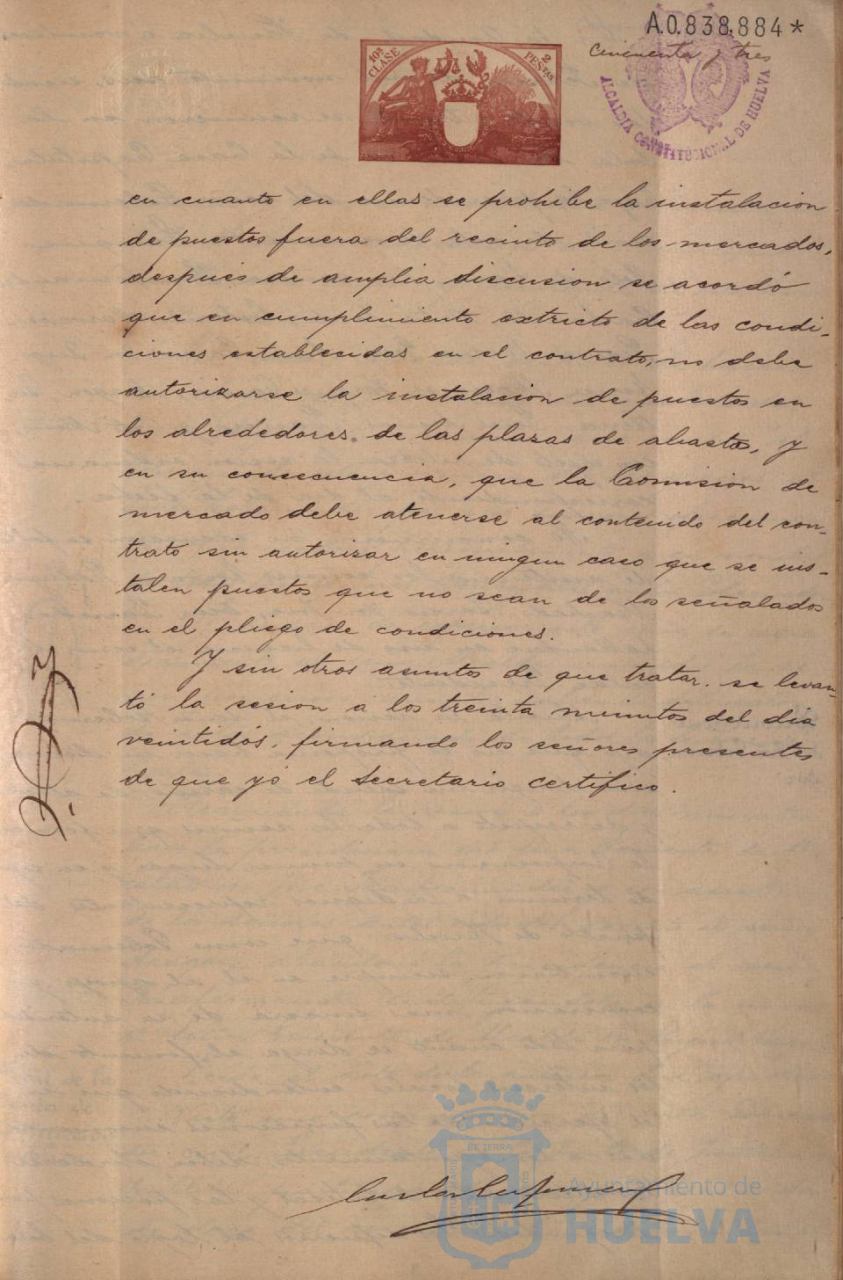 A.0.838.884*
cincuenta y tres
10ª CLASE
2 PESTAS
ALCALDIA CONSTITUCIONAL DE HUELVA
en cuanto en ellas se prohibe la instalacion
de puestos fuera del recinto de los mercados,
después de amplia discusion se acordó
que en cumplimiento extricto de las condi-
ciones establecidas en el contrato, no debe
autorizarse la instalacion de puestos en
los alrededores de las plazas de abastos, y
en su consecuencia, que la Comision de
mercado debe atenerse al contenido del con-
trato sin autorizar en ningun caso que se ins-
talen puestos que no sean de los señalados
en el pliego de condiciones.
Y sin otros asuntos de que tratar. se levan-
tó la sesion a los treinta minutos del dia
veintidós, firmando los señores presentes
de que yó el Secretario certifico.
Ayuntamiento de
HUELVA